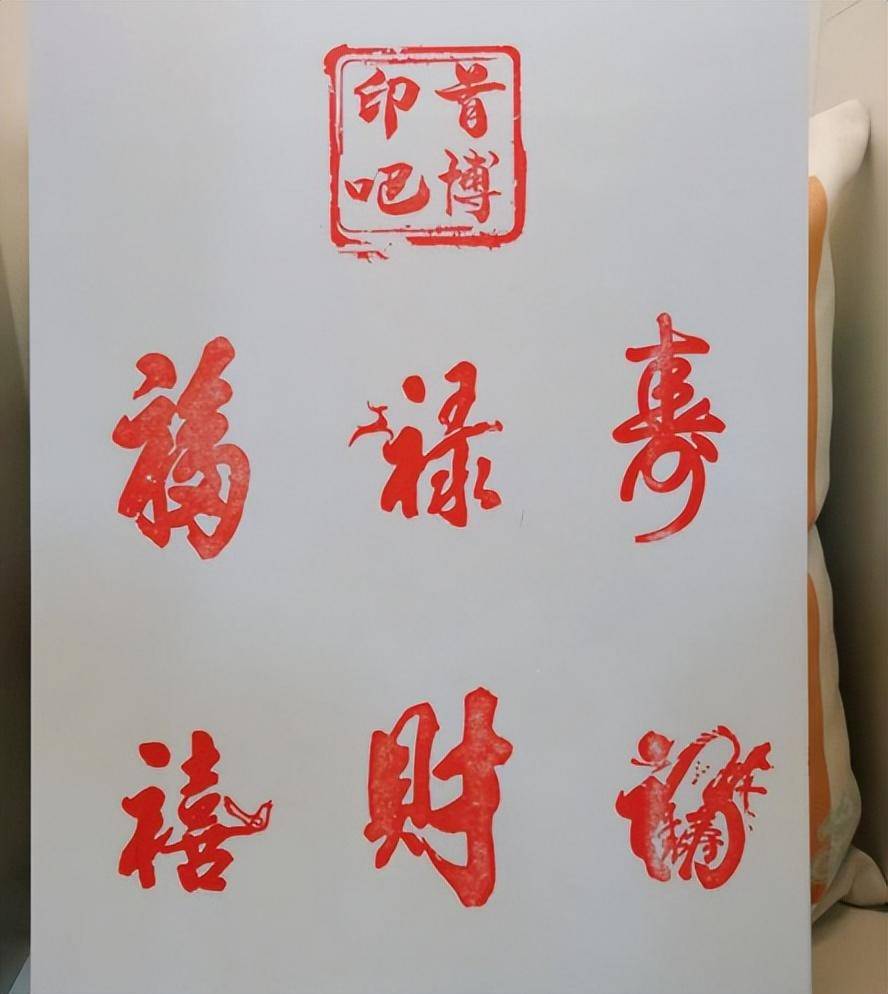 首博
印吧
福 禄 寿
禧 財